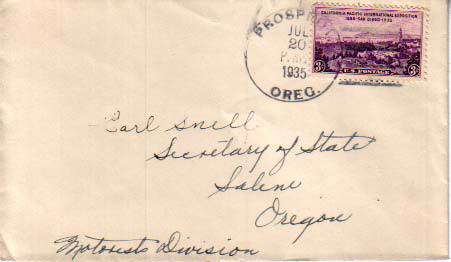 PROSPE
JUL
20
P.M.
1935
OREG.
CALIFORNIA PACIFIC INTERNATIONAL EXPOSITION
SAN DIEGO
3¢ U.S. POSTAGE 3¢
Earl Snell
Secretary of State
Salem
Oregon
Motorists Division